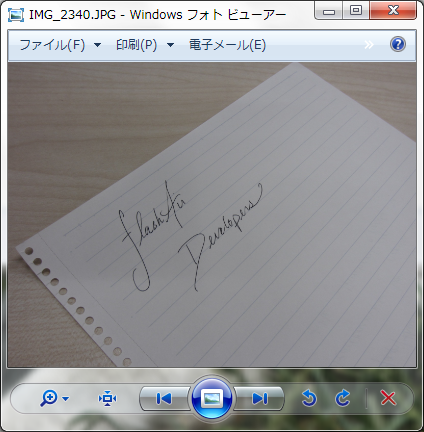 IMG_2340.JPG - Windows フォト ビューアー
ファイル(F) 印刷(P) 電子メール(E) »
FlashAir
Developers